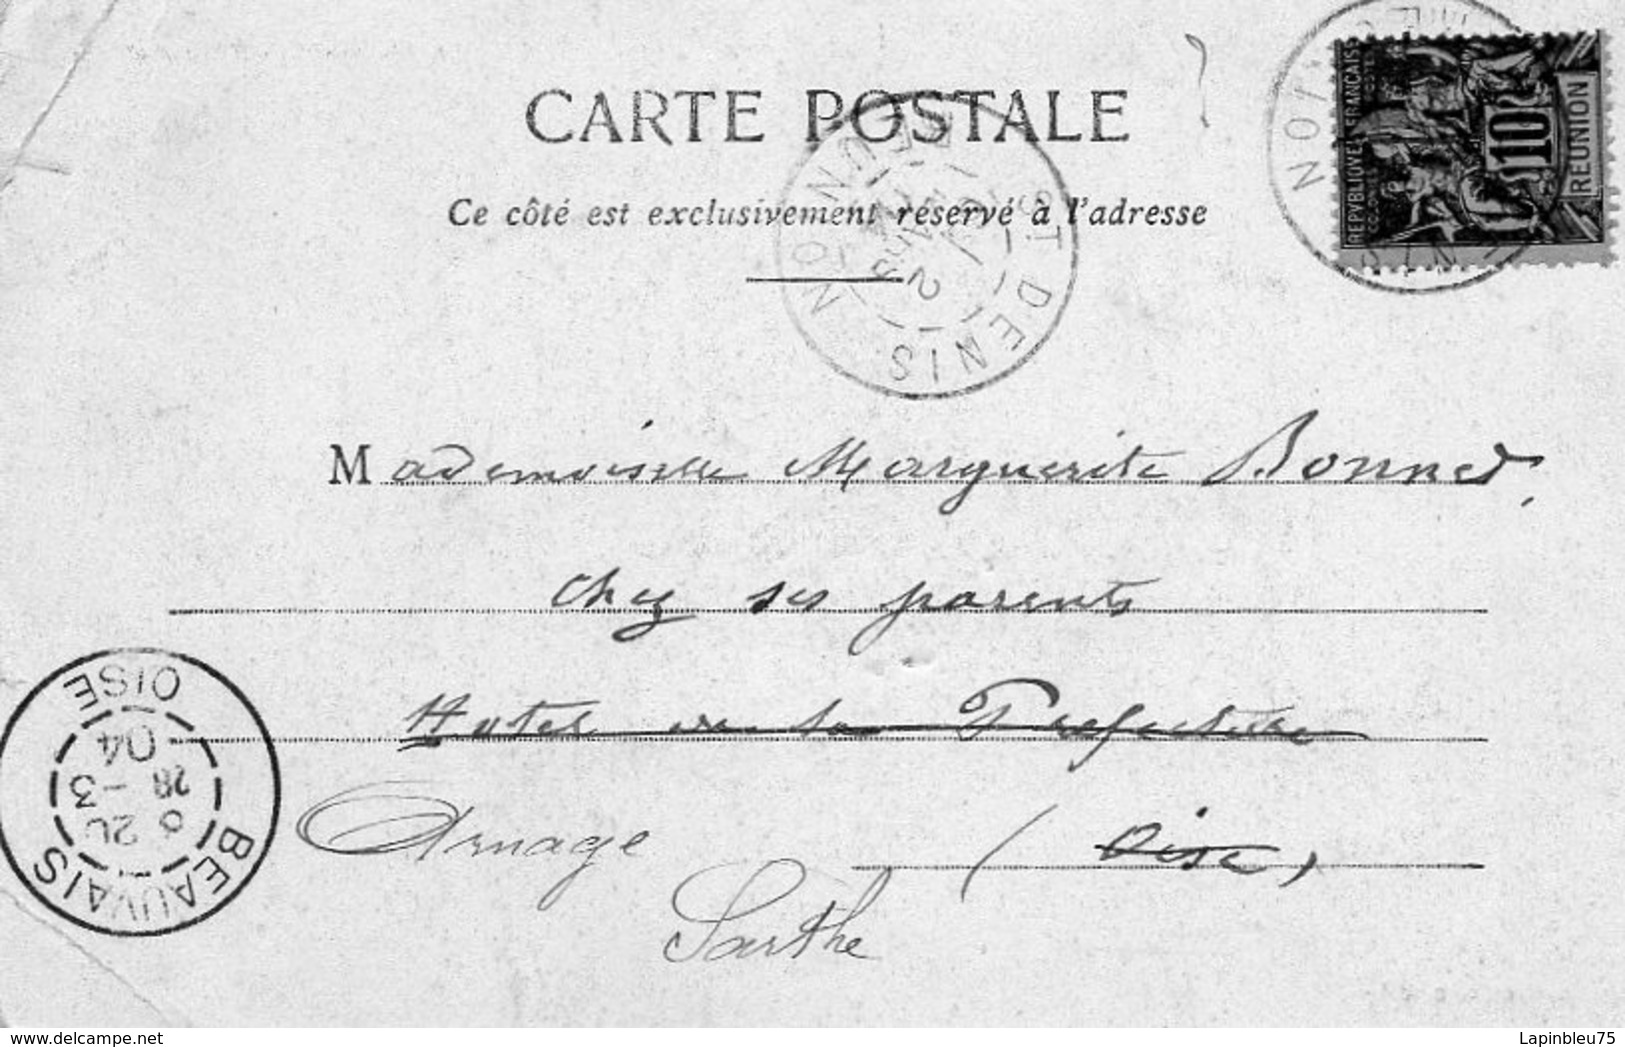 CARTE POSTALE
Ce côté est exclusivement réservé à l'adresse
REPVBLIQVE FRANCAISE
10
REUNION
ST DENIS
RÉUNION
Mademoiselle Marguerite Bonnet,
Chez ses parents
Hotel de la Prefecture
Arnage
(Oise)
Sarthe
BEAUVAIS
6 20
28 -3
04
OISE
Lapinbleu75